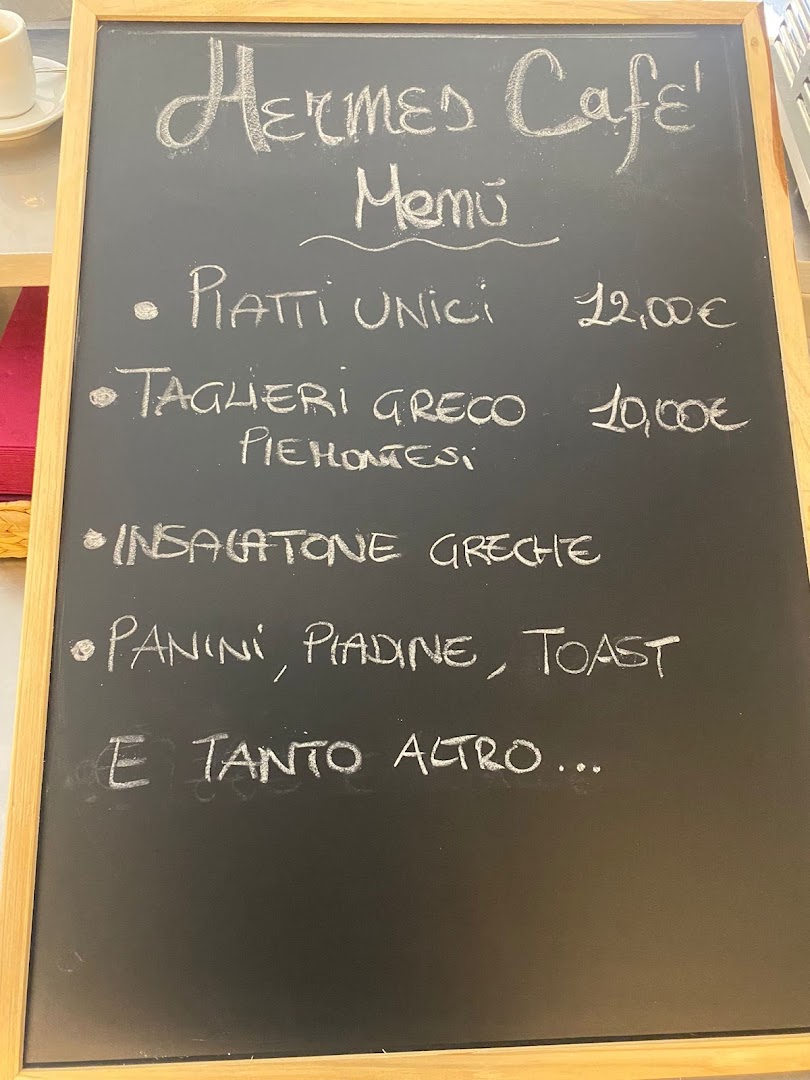 Hermes Cafe'
Menū
• PIATTI UNICI 12,00€
• TAGLIERI GRECO 10,00€
PIEMONTESI
• INSALATONE GRECHE
• PANINI, PIADINE, TOAST
E TANTO ALTRO...